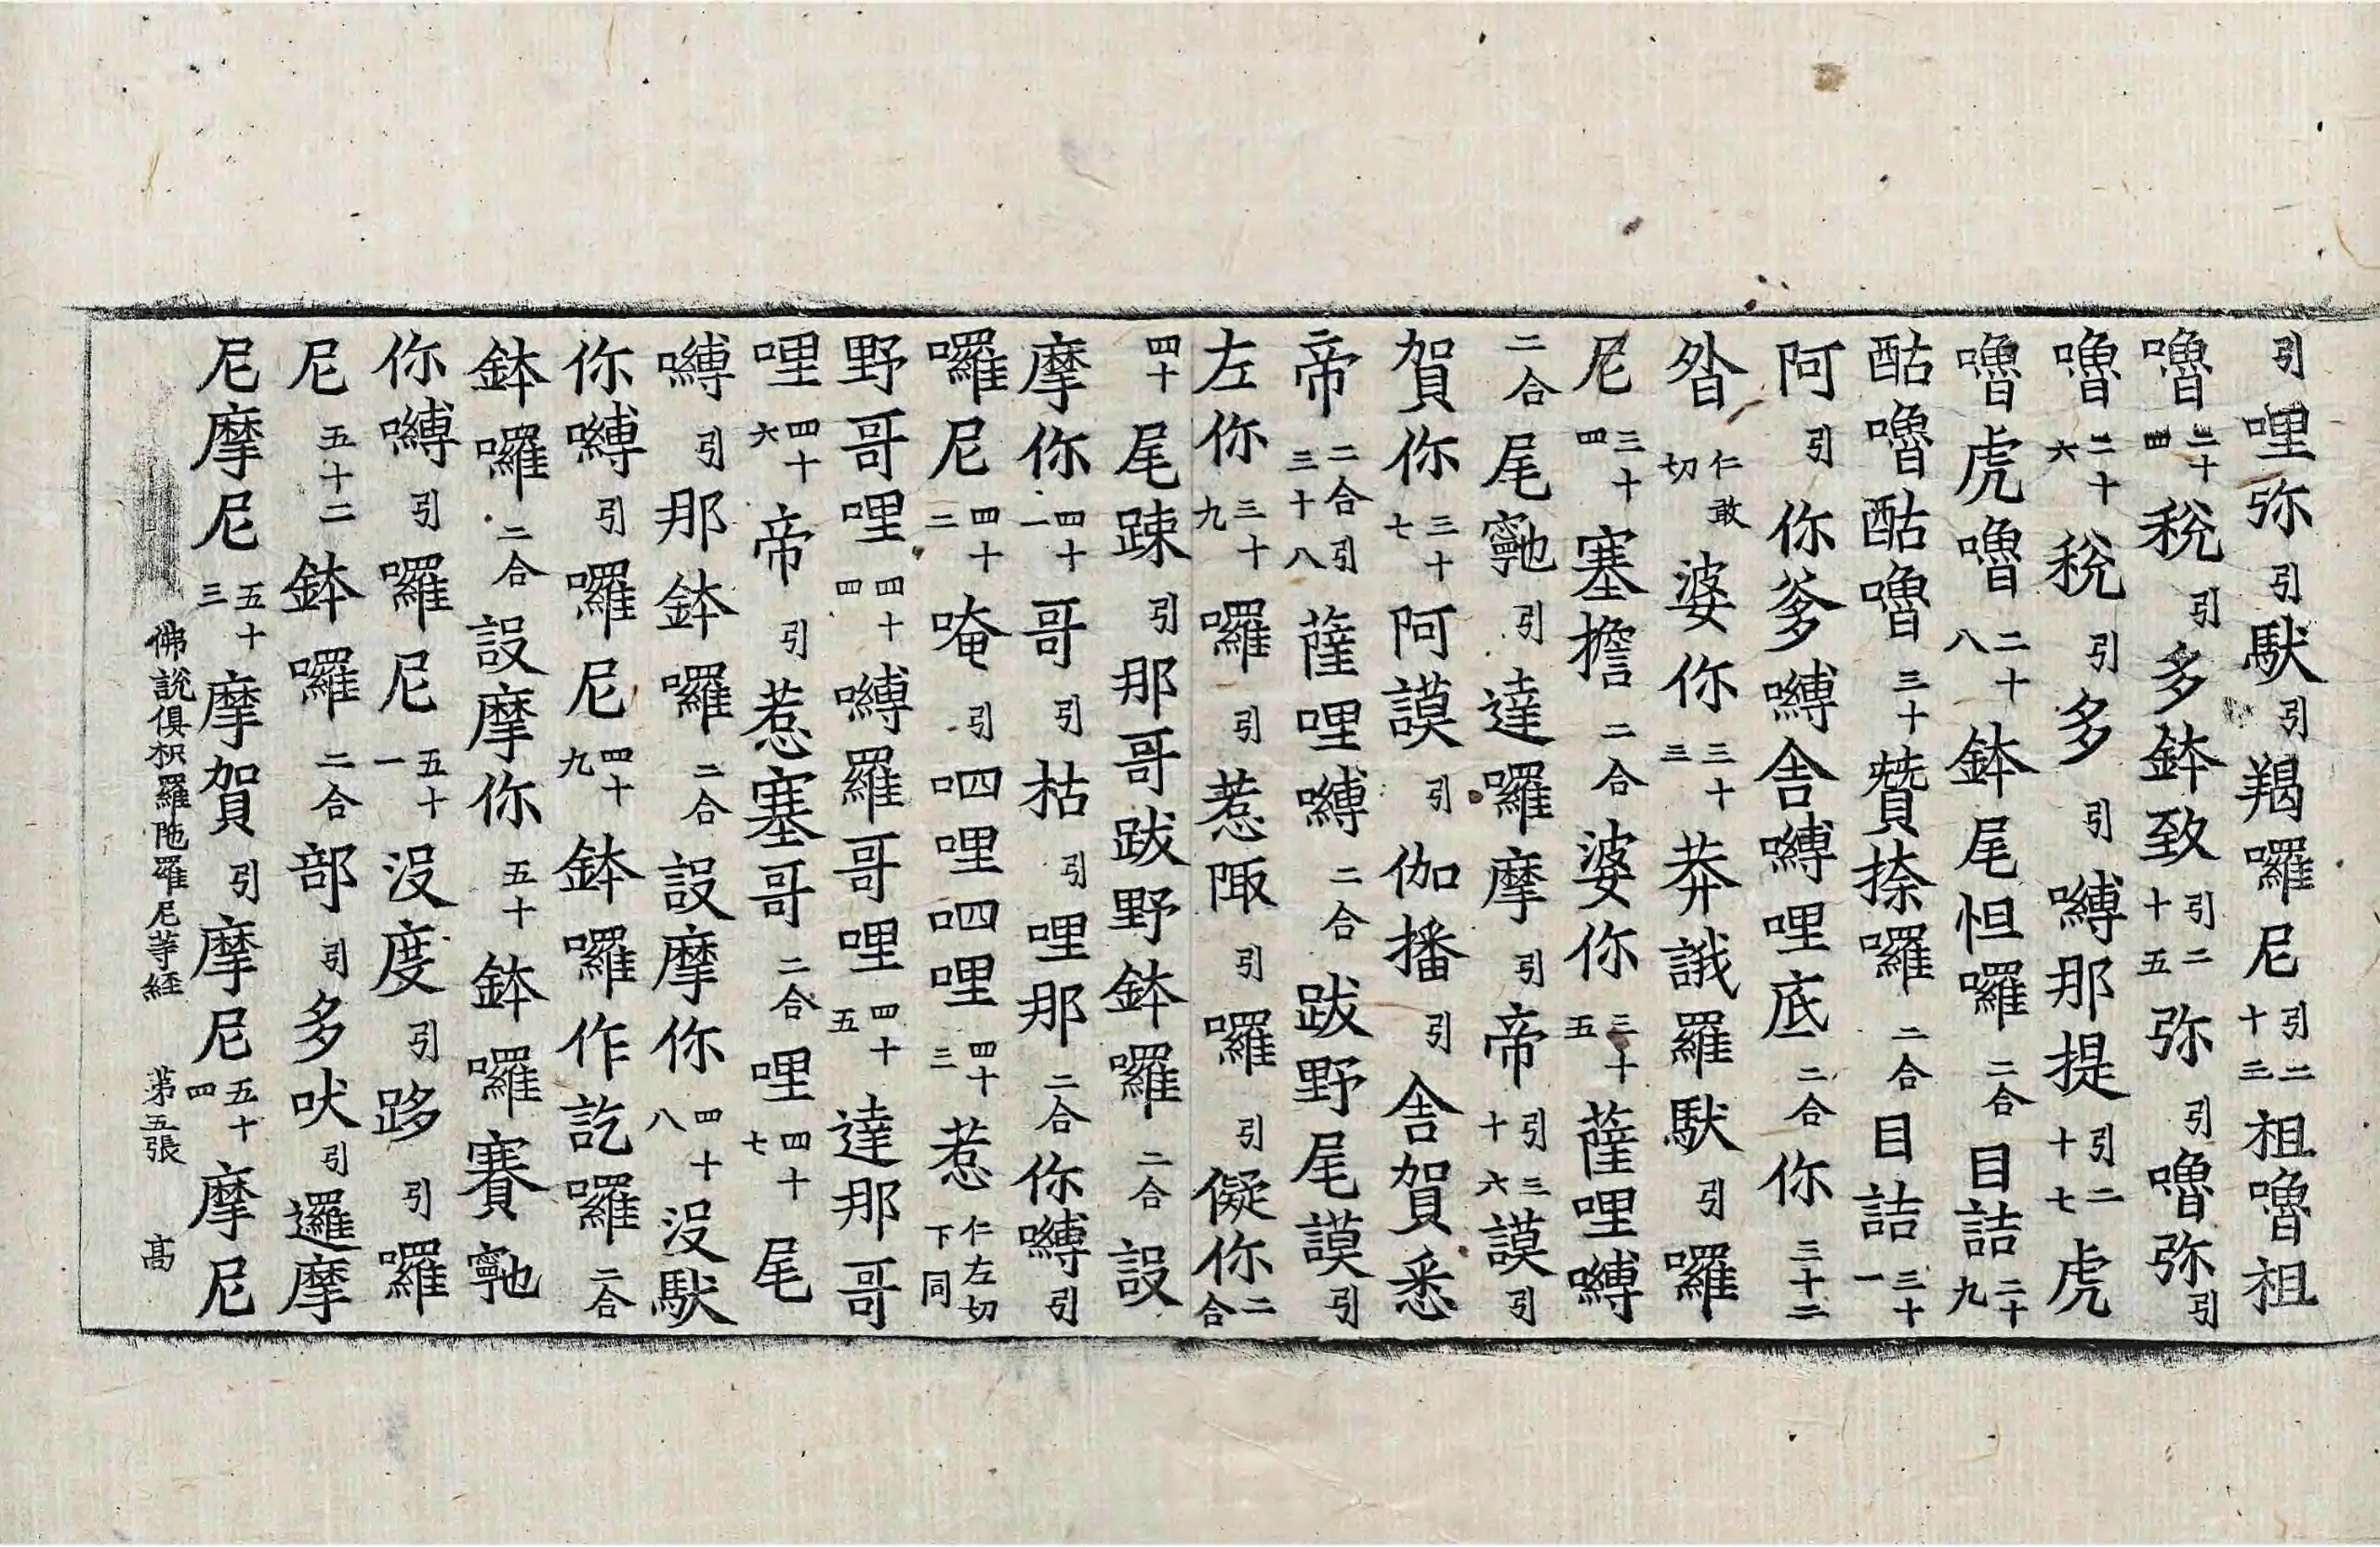 引哩弥引䭾引羯囉尼引二十三祖嚕祖
嚕二十四稅引多鉢致引二十五弥引嚕弥引
嚕二十六稅引多引嚩那提引二十七虎
嚕虎嚕二十八鉢尾怛囉二合目詰二十九
酤嚕酤嚕三十贊捺囉二合目詰三十一
阿引你爹嚩舎嚩哩底二合你三十二
昝仁敢切婆你三十三莽誐羅䭾引囉
尼三十四塞擔二合婆你三十五薩哩嚩
二合尾䆨引達囉摩引帝引三十六謨引
賀你三十七阿謨引伽播引舎賀悉
帝二合引三十八薩哩嚩二合跋野尾謨引
左你三十九囉引惹陬引囉引儗你二合
四十尾踈引那哥跋野鉢囉二合設
摩你四十一哥引枯引哩那二合你嚩引
囉尼四十二唵引呬哩呬哩四十三惹仁左切下同
野哥哩四十四嚩羅哥哩四十五達那哥
哩四十六帝引惹塞哥二合哩四十七尾
嚩引那鉢囉二合設摩你四十八沒䭾
你嚩引囉尼四十九鉢囉作訖囉二合
鉢囉二合設摩你五十鉢囉賽䆨
你嚩引囉尼五十一沒度引跢引囉
尼五十二鉢囉二合部引多吠引邏摩
尼摩尼五十三摩賀引摩尼五十四摩尼
佛說俱枳羅陁羅尼等経 苐五張 髙